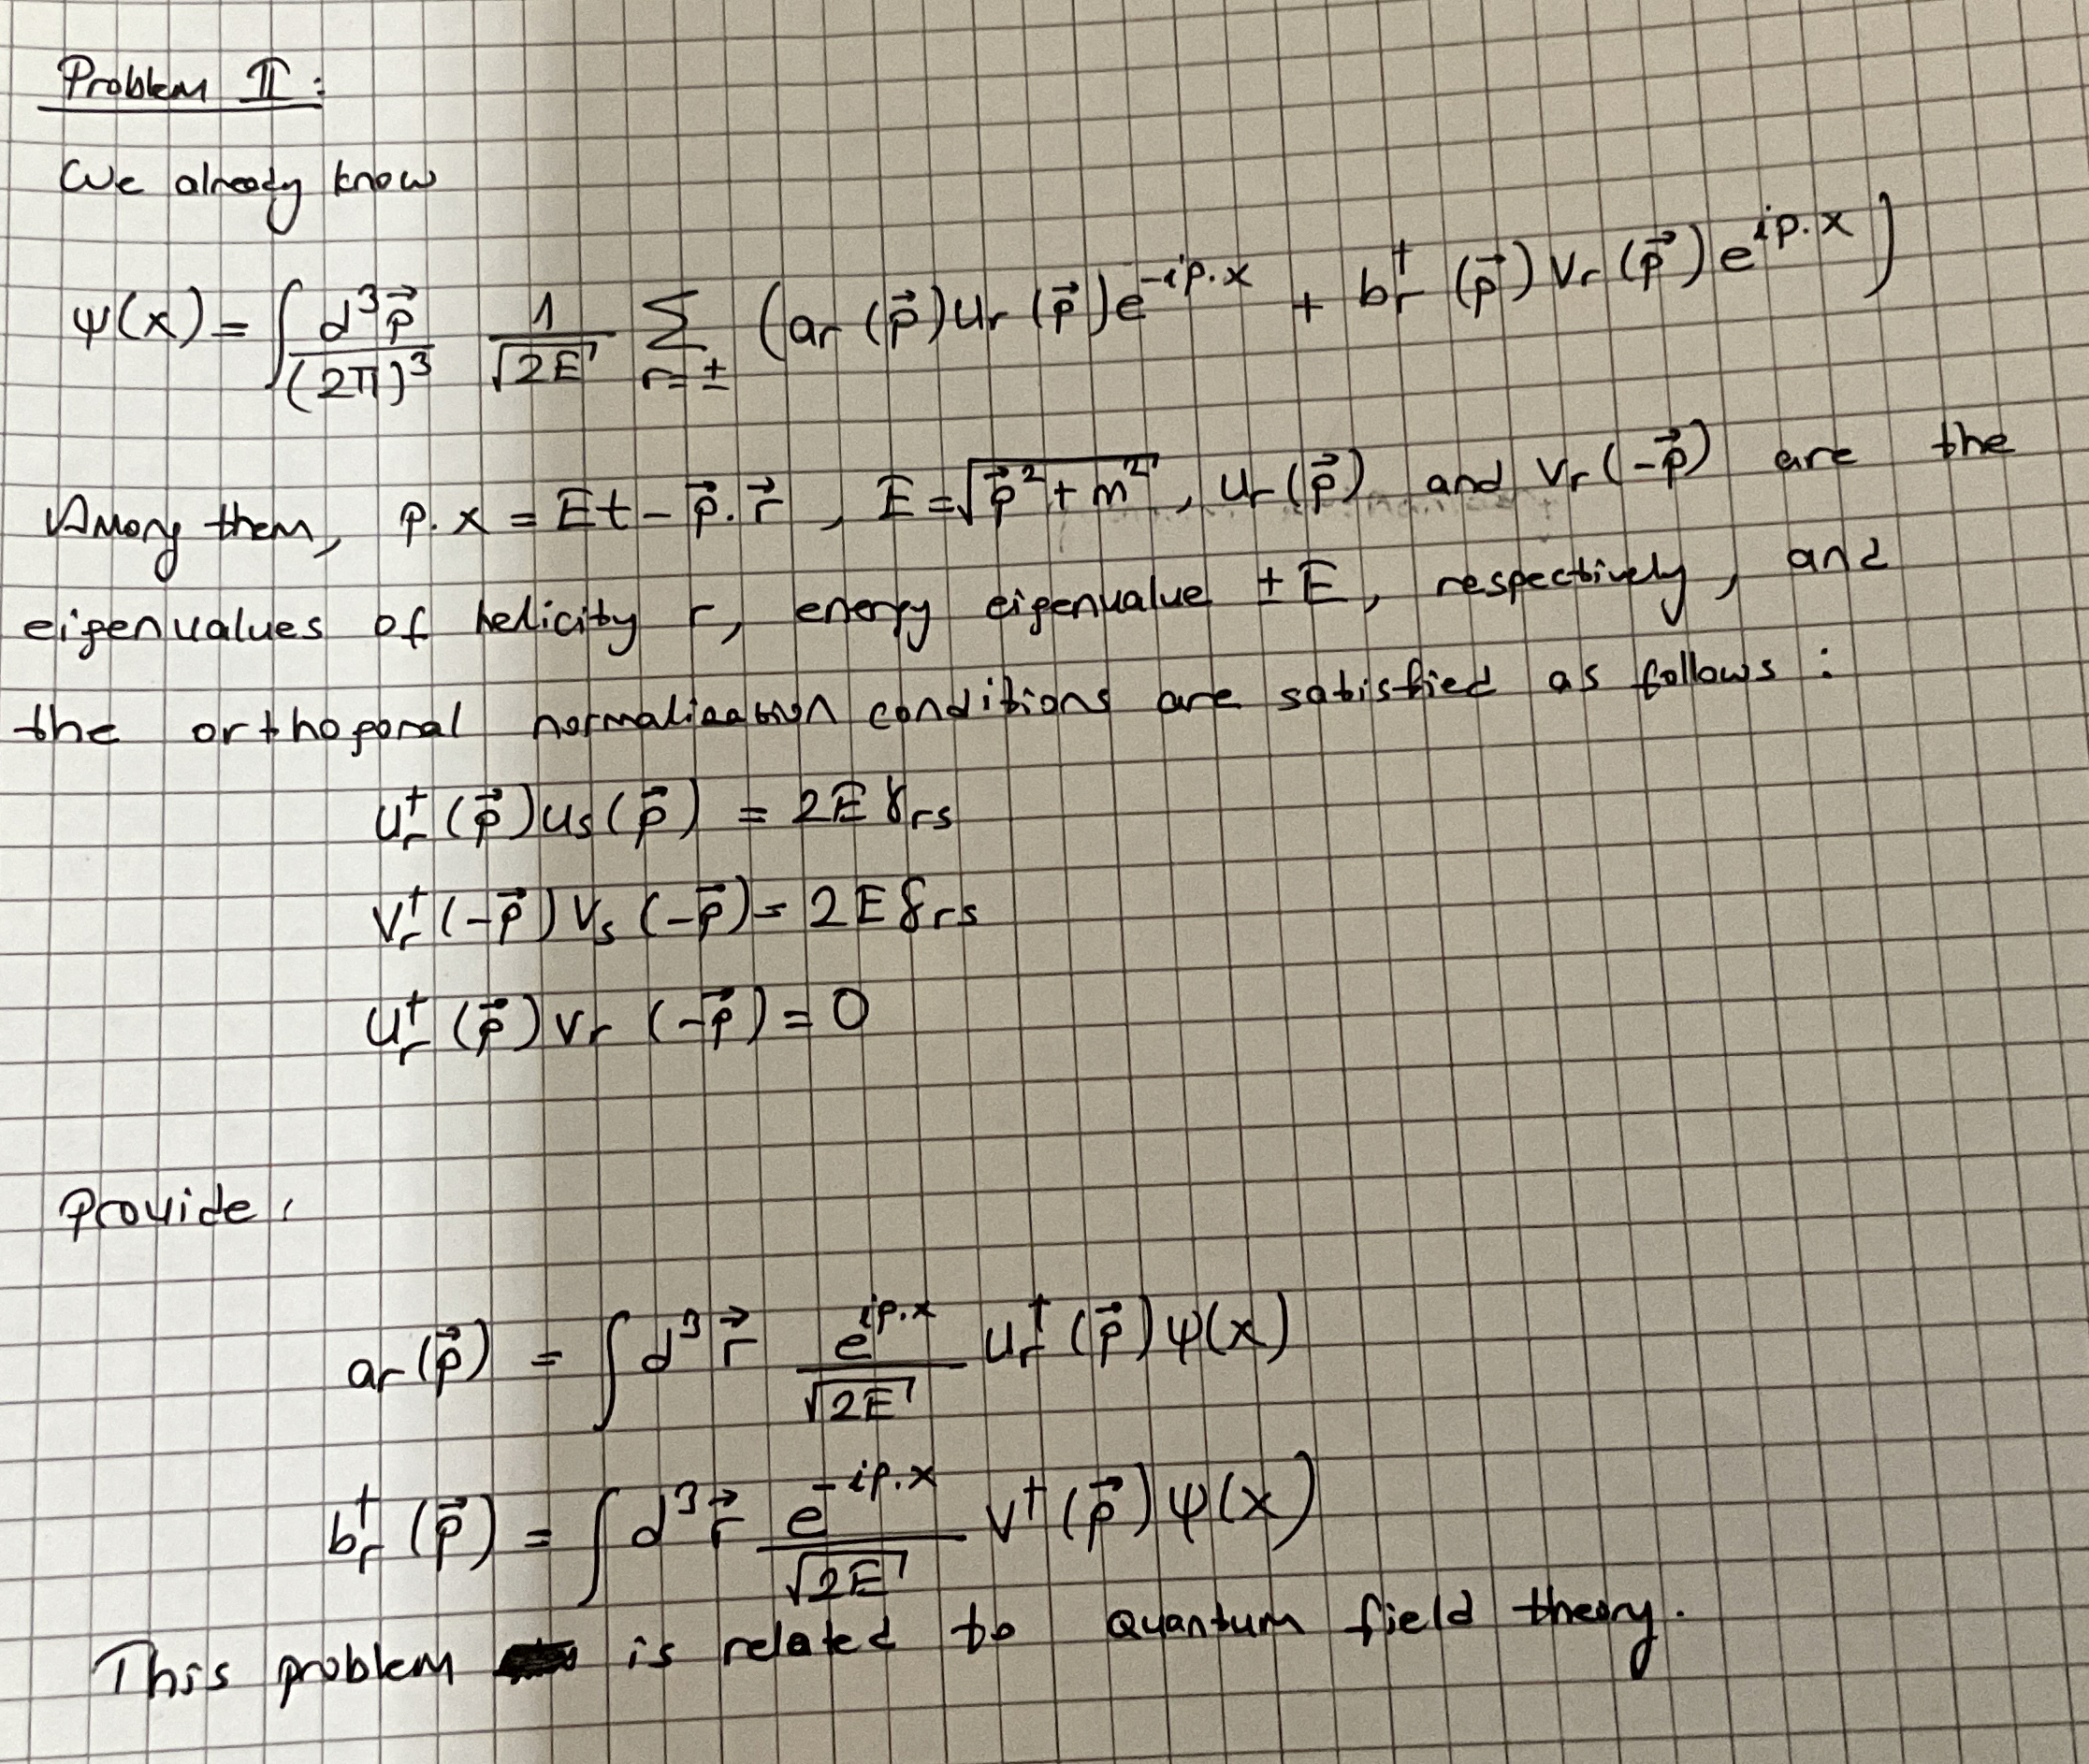 Problem II :
We already know
ψ(x) = ∫ d³p⃗/(2π)³ 1/√2E ∑_{r=±} (a_r(p⃗)u_r(p⃗)e^{-ip.x} + b_r^†(p⃗)v_r(p⃗)e^{ip.x})
Among them, p.x = Et - p⃗.r⃗ , E = √(p⃗² + m²) , u_r(p⃗) and v_r(-p⃗) are the
eigenvalues of helicity r, energy eigenvalue ±E, respectively, and
the orthogonal normalization conditions are satisfied as follows :
u_r^†(p⃗)u_s(p⃗) = 2E δ_rs
v_r^†(-p⃗)v_s(-p⃗) = 2E δ_rs
u_r^†(p⃗)v_r(-p⃗) = 0
Provide :
a_r(p⃗) = ∫ d³r⃗ e^{ip.x}/√2E u_r^†(p⃗)ψ(x)
b_r^†(p⃗) = ∫ d³r⃗ e^{-ip.x}/√2E v^†(p⃗)ψ(x)
This problem is related to Quantum field theory.